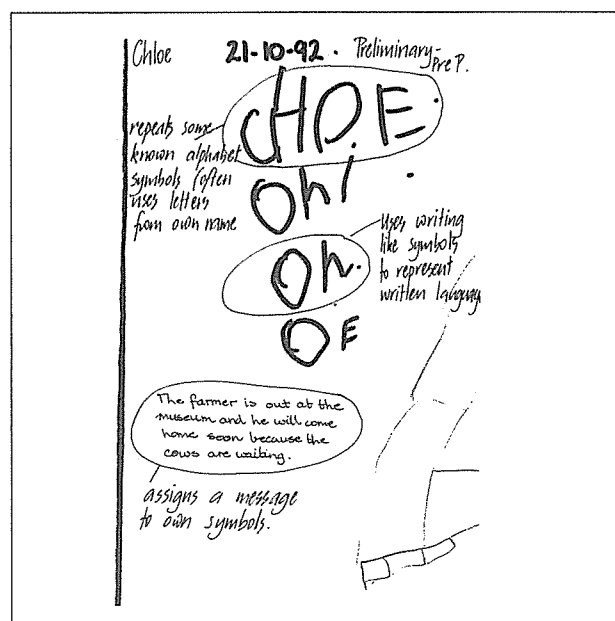 Chloe 21-10-92. Preliminary-
Pre P.
CHOE
repeats some
known alphabet
symbols (often
uses letters
from own name
Ohi
Oh.
Uses writing
like symbols
to represent
written language
OE
The farmer is out at the
museum and he will come
home soon because the
cows are waiting.
assigns a message
to own symbols.